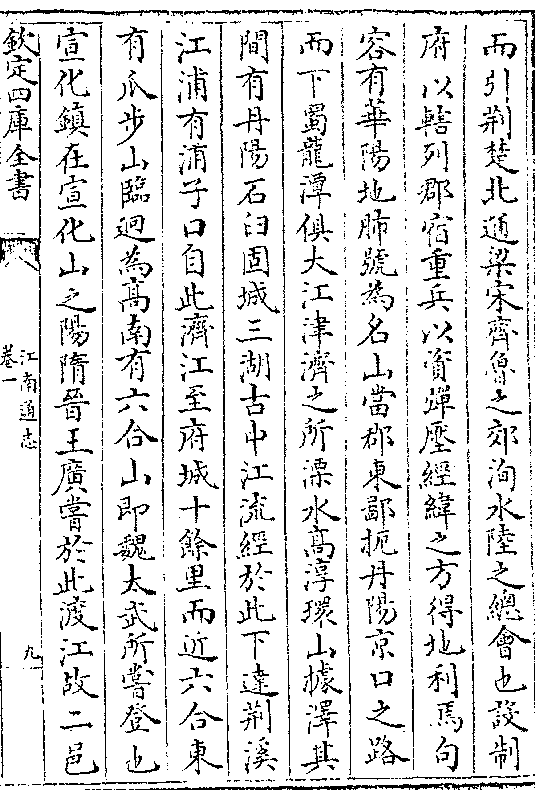 而引荆楚北通梁宋齊魯之郊洵水陸之總會也設制
府以轄列郡宿重兵以資彈壓經緯之方得地利焉句
容有華陽地肺號為名山當郡東鄙扼丹陽京口之路
而下蜀龍潭俱大江津濟之所溧水高淳環山據澤其
間有丹陽石臼固城三湖古中江流經於此下達荆溪
江浦有浦子口自此濟江至府城十餘里而近六合東
有瓜步山臨迴為高南有六合山即魏太武所嘗登也
宣化鎮在宣化山之陽隋晉王廣嘗於此渡江故二邑
欽定四庫全書
江南通志
卷一
九